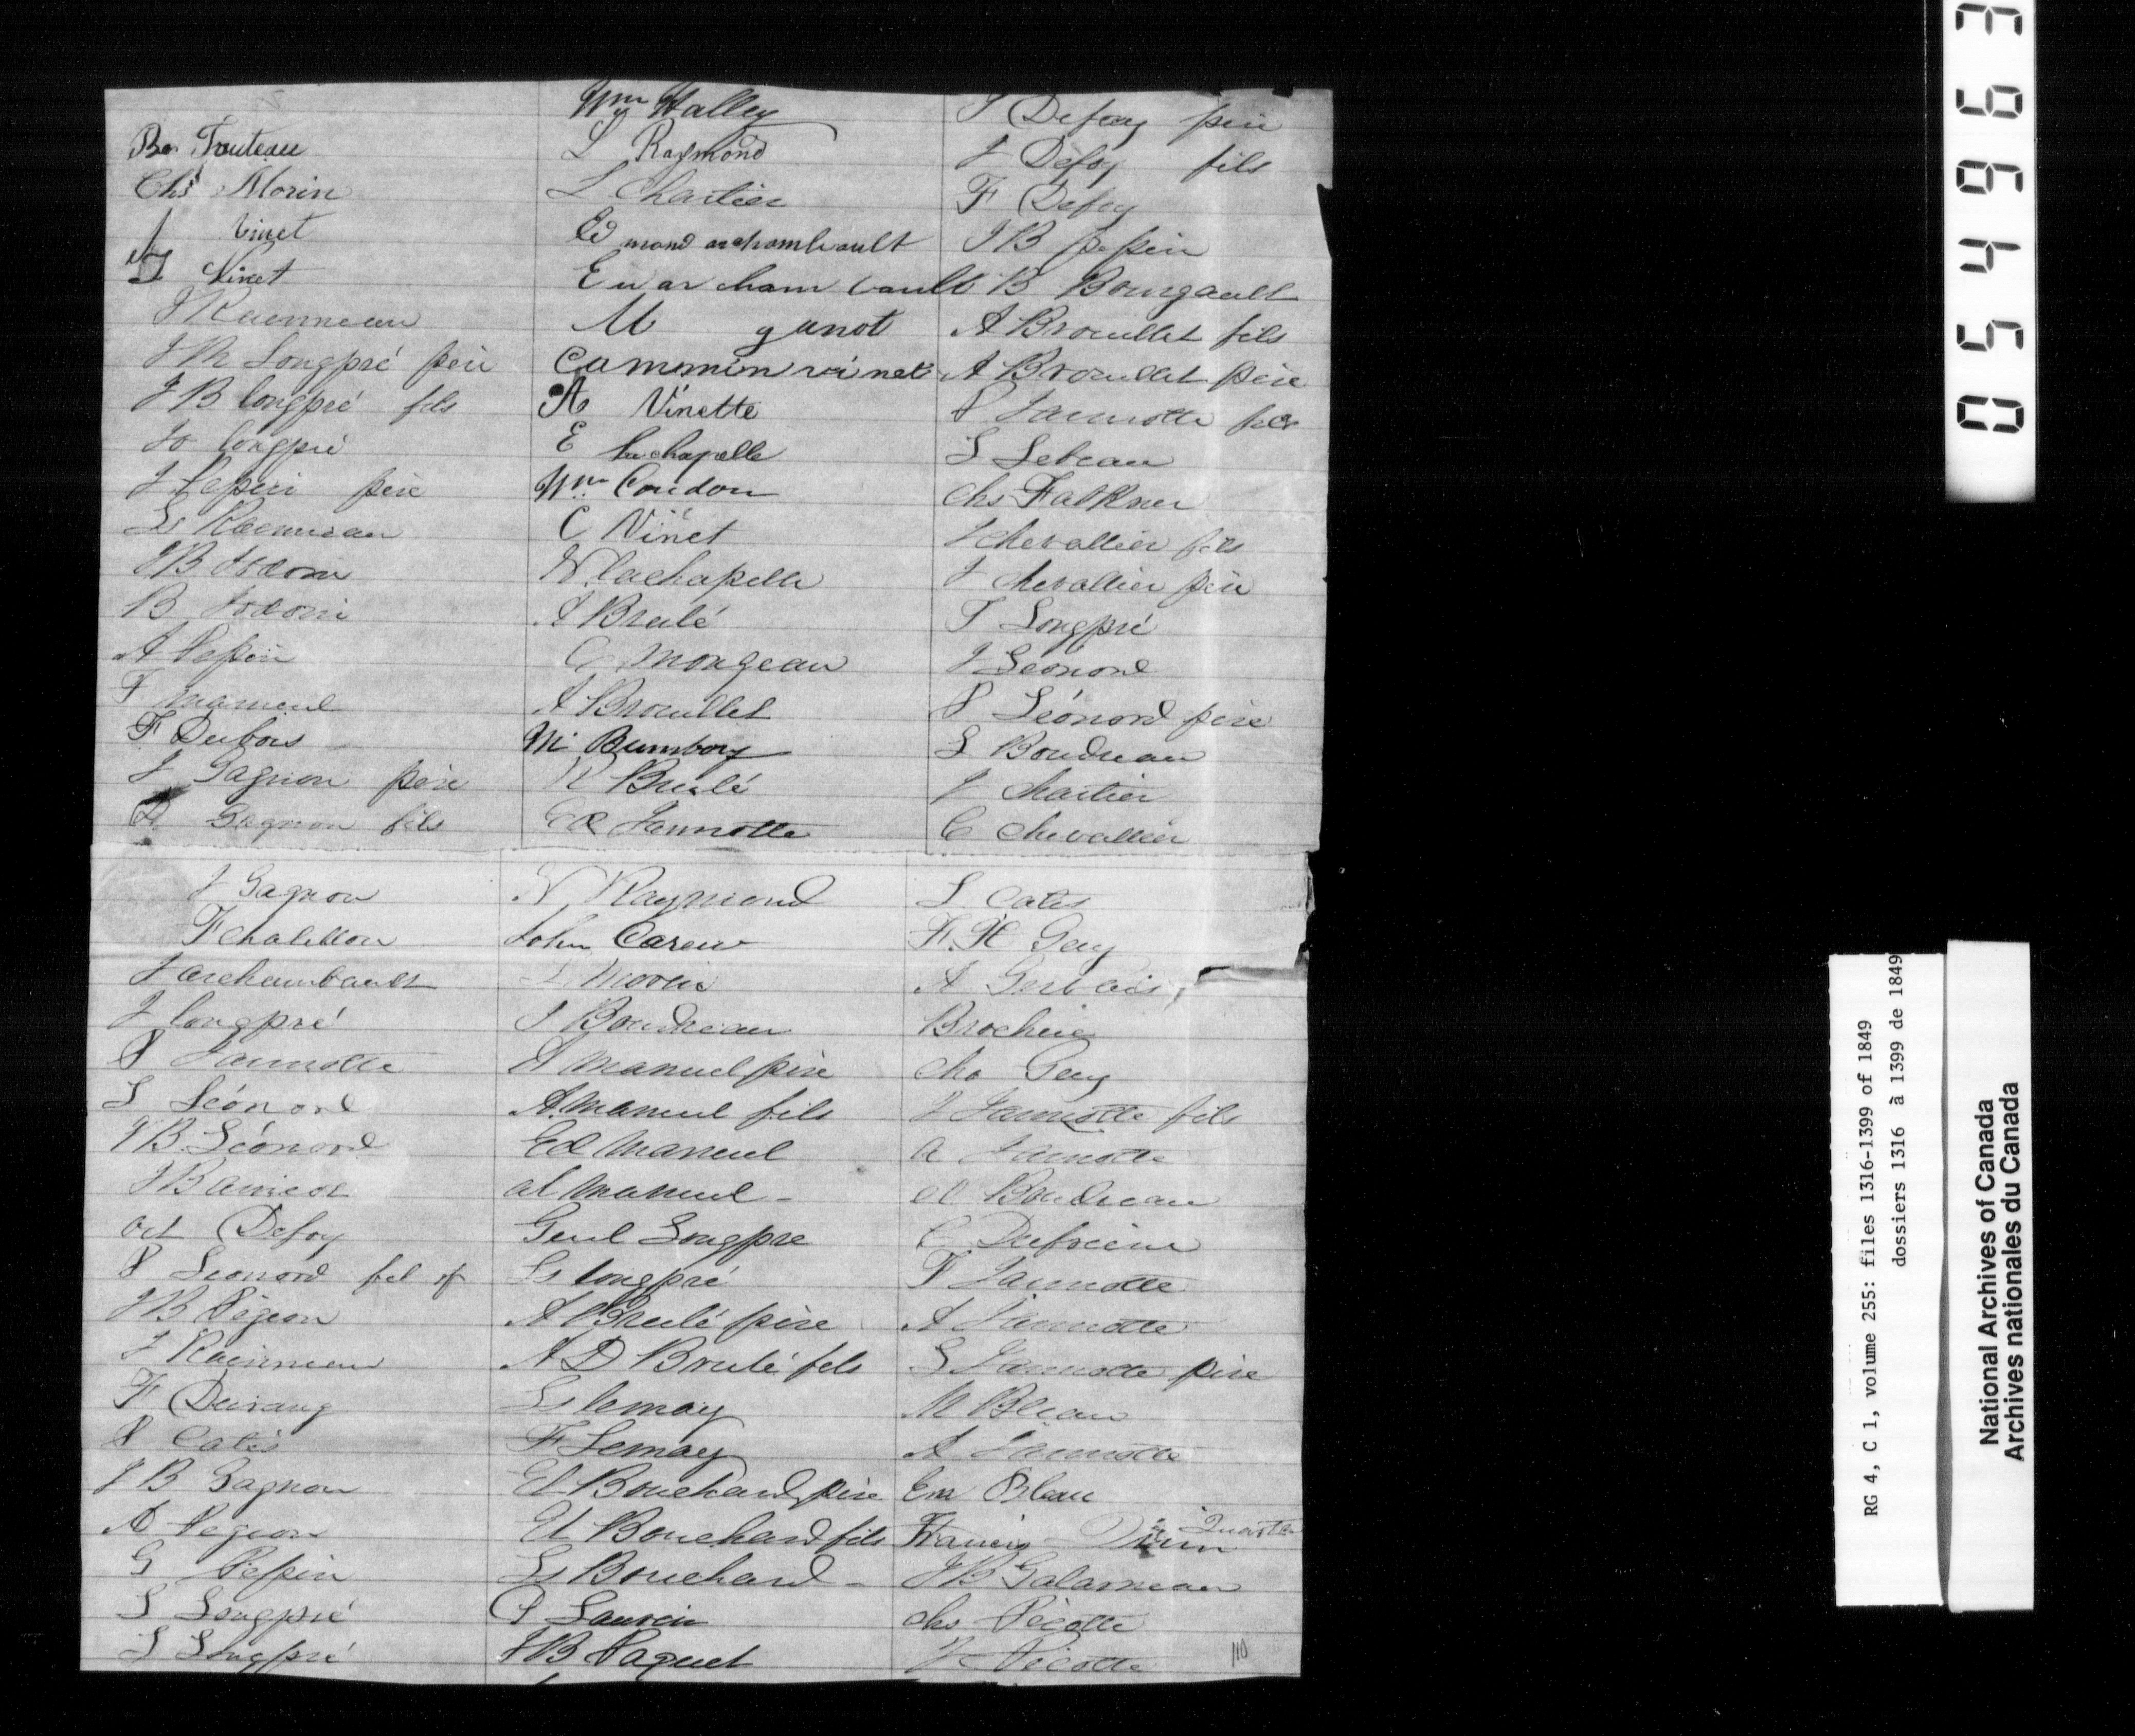 Wm Halley
Bo Truteau
Chs Morin
Vinet
J Vinet
J Racinneau
J M Longpré père
J B longpré fils
Jo longpré
J Pepin père
Ls Racinneau
JB Jodoin
B Jodoin
A Pepin
F manuel
F Dubois
J Gagnon père
Gagnon fils
L Raymond
L Chartier
Ed mond archambeault
E u ar cham bault
M gunot
Cammmin vinet
A Vinette
E lachapelle
Wm Condon
C Vinet
N lachapelle
A Brulé
C mongeau
A Brouillet
M Bumbory
R Brulé
Ed Jannotte
J Defoy père
J Defoy fils
F Defoy
J B pepin
B Bourgault
A Brouillet fils
A Brouillet père
P Jannotte fils
L Lebeau
chs Falkner
J chevallier fils
J chevallier père
T Longpré
J Léonord
P Léonord père
L Boudreau
J chartier
C chevallier
J Gagnon
F chatillon
J archambault
J longpré
P Jannotte
L Léonord
JB Léonord
oct Defoy
P Leonord fils
JB Pégeon
J Racinneau
F Durang
P Catis
J B Gagnon
A Pegeon
G Pepin
L Longpré
L Longpré
N Raymond
John Carew
L Morin
J Boudreau
A manuel père
A manuel fils
Ed Manuel
al manuel
Genl Longpre
Ls longpré
A Brulé père
A D Brulé fils
Ls lemay
F Lemay
Et Bouchard père
Et Bouchard fils
Ls Bouchard
P Laurin
J B Paquet
L Catis
F.X Guy
A Gervais
Brochu
chs Guy
J Jannotte fils
a Jannotte
Boudreau
C Dufresne
F Jannotte
A Jannotte
L Jannotte père
M Bleau
A Jannotte
Em Bleau
Francis
JB Galarneau
chs Picotte
J Picotte
110
054963
RG 4, C 1, volume 255: files 1316-1399 of 1849
dossiers 1316 à 1399 de 1849
National Archives of Canada
Archives nationales du Canada